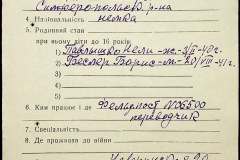 Симферопольськ. р-на
4. Національність немка
5. Родинний стан
при ньому діти до 16 років
1) Павлишко Нели - ж - 3/VII-40 г.
2) Беслер Борис - м - 20/VIII-41 г.
3)
4)
5)
6. Ким працює і де Фельдпост №06500
переводчик
7. Спеціальність
8. Де проживав до війни